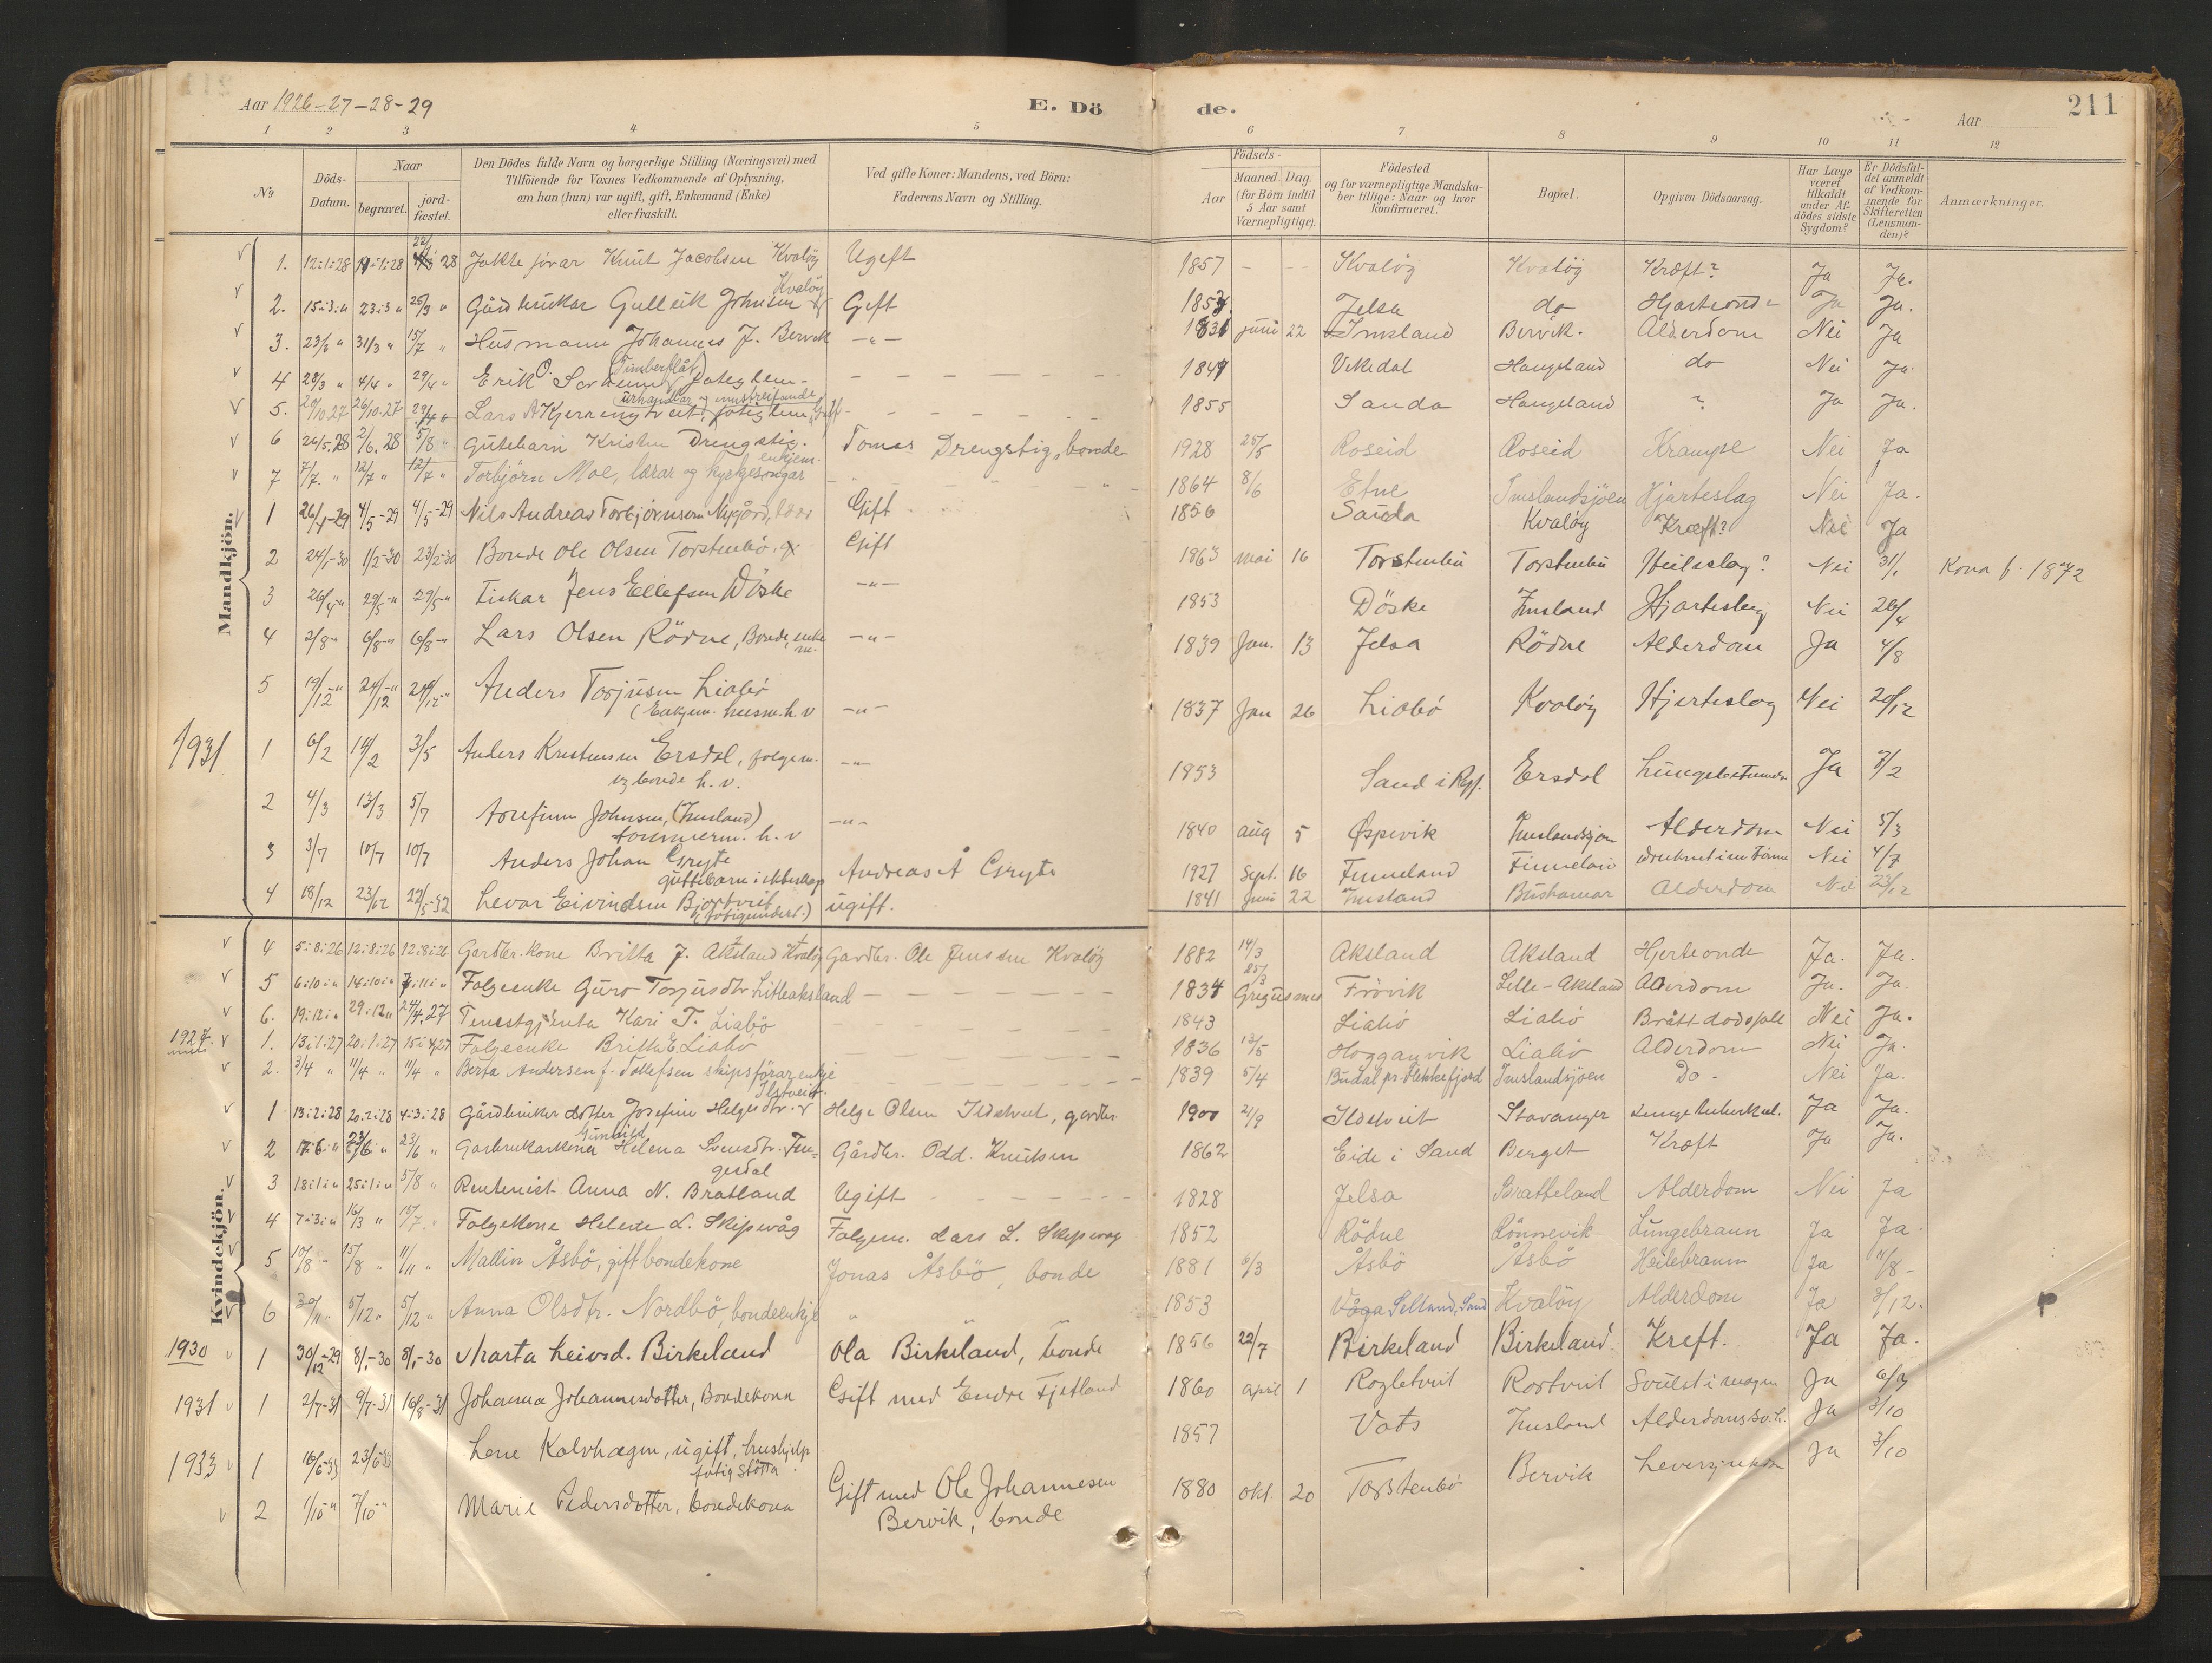 Aar 1926-27-28-29
E. Dö
de.
Aar
211
1 2 3 4 5 6 7 8 9 10 11 12
№
Döds-Datum.
Naar
begravet.
jord-fæstet.
Den Dödes fulde Navn og borgerlige Stilling (Næringsvei) med
Tilföiende for Voxnes Vedkommende af Oplysning,
om han (hun) var ugift, gift, Enkemand (Enke)
eller fraskilt.
Ved gifte Koner: Mandens, ved Börn:
Faderens Navn og Stilling.
Födsels-
Aar
Maaned. Dag.
(for Börn indtil
5 Aar samt
Værnepligtige).
Födested
og for værnepligtige Mandska-
ber tillige: Naar og hvor
konfirmeret.
Bopæl.
Opgiven Dödsaarsag.
Har Læge
været
tilkaldt
under Af-
dödes sidste
Sygdom?
Er Dödsfal-
det anmeldt
af Vedkom-
mende for
Skifteretten
(Lensman-
den)?
Anmærkninger.
Mandkjön.
1. 12:1:28 28 Knut Jacobsen Kvalöy Ugift 1857 - -- Kvalöy Kvalöy Kræft? Ja Ja.
2. 15:3:" 23:3 " 25/3 " Gulleik Johnsen Kvalöy Gift Jelsa do Hjarteonde Ja Ja.
3. 23/3 " 31/3 " 15/7 " Husmann Johannes J. Bervik -"- 1831 juni 22 Imsland Bervik. Alderdom Nei Ja
4 28/3 " 4/4 " 29/4 " Erik O. Vikedal Haugeland do Nei Ja.
5. 20/10.27 26/10.27 29/4 " Lars 1855 Sauda Haugeland ? Ja Ja.
6 26/5.28 2/6.28 5/8 " Gutebarn Kristen Drengstig. Tomas Drengstig, bonde 1928 25/5 Roseid Roseid Krampe Nei Ja
7 7/7. " 12/7 " 12/7 " Torbjörn Moe, lærar og kyrkjesongar enkjem. 1864 8/6 Etne Imslandsjöen Hjarteslag Nei Ja.
1 26/4-29 4/5-29 4/5-29 Nils Andreas Torbjörnsen Nygård, Gift 1856 Sauda Kvalöy Kræft? Nei Ja
2 24/1-30 1/2-30 23/2-30 Bonde Ole Olsen Torstenbö. Gift 1863 mai 16 Torstenbö Torstenbö Heileslag? Nei 31/1 Kona f. 1872
3 26/4-" 29/5-" 29/5-" Fiskar Jens Ellefsen Döske -"- 1853 Döske Imsland Hjarteslag Nei 26/4
4 2/8-" 6/8-" 6/8-" Lars Olsen Rödne, Bonde, enkem. -"- 1839 Jan. 13 Jelsa Rödne Alderdom Ja 4/8
5 19/12-" 24/12-" Anders Torjusen Liabö
(Enkjem. husm. h. v -"- 1837 Jan 26 Liabö Kvalöy Hjerteslag Nei 20/12
1931 1 6/2 14/2 3/5 Anders Kristensen Ersdal, folgem.
og bonde h. v. -"- 1853 Sand i Ryf. Ersdal Lungebetennelse Ja 7/2
2 4/3 13/3 5/7 Arnfinn Johnsen, (Imsland)
tommerm. h. v -"- 1840 aug 5 Øspevik Imslandsjøen Alderdom Nei 5/3
3 3/7 10/7 10/7 Anders Johan Gryte
guttebarn i ekteskap Andreas A Gryte 1927 Sept. 16 Finneland Finneland Nei 4/7
4 18/12 23/12 22/5-32 Levar Eivindsen Bjortveit
ugift. 1841 Juni 22 Imsland Buskamar Alderdom Nei 23/12
Kvindekjön.
4 5:8:26 12:8:26 12:8:26 Gardbr. kone Britta J. Aksland Kvalöy Gardbr. Ole Jenssen Kvalöy 1882 14/3 Aksland Aksland Hjerteonde Ja. Ja.
5 6:10:" 14:10:" 7:11:" Folgeenke Guro Torjusdtr Litleaksland 1834 25/3 Gregusmes Frövik Lille-Aksland Alderdom Ja. Ja.
6. 19:12:" 29:12" 24/4.27 Tenestgjenta Kari T. Liabö 1843 Liabö Liabö Brått dödsfall Nei Ja.
1927. 1. 13:1:27 20:1:27 15:4:27 Folgeenke Britta E. Liabö 1836 13/5 Hogganvik Liabö Alderdom Nei Ja.
2. 3/4 " 11/4 " 11/4 " Berta Andersen f. Tollefsen skipsförarenkje 1839 5/4 Budal pr. Flekkefjord Imslandsjöen Do - Nei Ja.
1 13:2:28 20:2:28 4:3:28 Gårdbruker dotter Josefine Helgesdtr. Ilstveit Helge Olsen Ildstveit, gardbr. 1900 21/9 Ildstveit Stavanger Lungetuberkul. Ja Ja.
2 17:6:" 23/6 " 23/6 " Gardbrukarkona Gunhild Helena Svensdtr. Fengesdal Gårdbr. Odd. Knutsen 1862 Eide i Sand Berget Kræft Ja Ja.
3 18:1:" 25:1:" 5/8 " Rentenist Anna N. Bratland Ugift 1828 Jelsa Bratteland Alderdom Nei Ja
4 7:3:" 16/3 " 15/7. " Folgekone Helene L. Skipevåg Folgem. Lars L. Skipevåg 1852 Rödne Rönnevik Lungebraun Ja Ja.
5 10/8 " 15/8 " 11/11 " Mallin Åsbö, gift bondekone Jonas Åsbö, bonde 1881 6/3 Åsbö Åsbö Heilebraun Ja 11/8-
6 30/11 " 5/12 " 5/12 " Anna Olsdtr. Nordbö, bondeenkje " 1853 Våga Selland, Sand Kvalöy Alderdom Ja 3/12.
1930 1 30/12-29 8/1-30 8/1-30 Marta Leivsd. Birkeland Ola Birkeland, bonde 1856 22/7 Birkeland Birkeland. Kreft. Ja Ja.
1931 1 2/7-31 9/7-31 16/8-31 Johanna Johannesdotter, Bondekona Gift med Endre Fjetland 1860 April 1 Rortveit Svulst i magen Ja 6/7
1933 1 16/6-33 23/6-33 Lene Kalvhagen, ugift, hushjelp
fatigstötta. 1857 Vats Imsland Ja 3/10
2 1/10 " 7/10 " Marie Pedersdotter, bondekona Gift med Ole Johannesen
Bervik, bonde 1880 Okt. 20 Torstenbö Bervik Ja 3/10